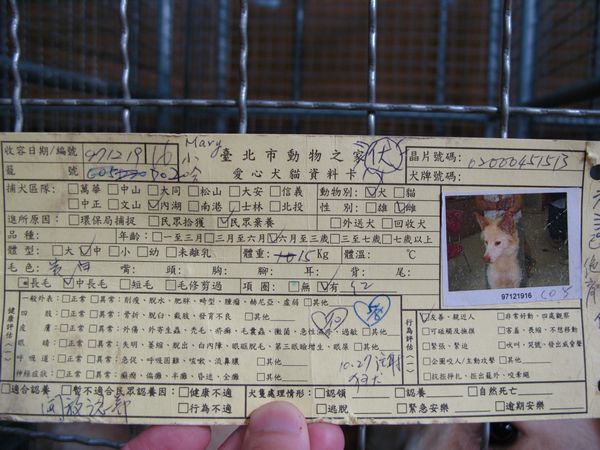 Mary
收容日期/編號 971219 16 小 臺北市動物之家 伏 晶片號碼: 02000451513
籠 號 愛心犬貓資料卡 犬牌號碼:
捕犬區隊: □萬華 □中山 □大同 □松山 □大安 □信義 動物別: ☑犬 □貓
□中正 □文山 ☑內湖 □南港 □士林 □北投 性 別: □雄 ☑雌
進所原因: □環保局捕捉 □民眾拾獲 ☑民眾棄養 □外送犬 □回收犬
品種: 年齡: □一至三月 □三月至六月 ☑六月至三歲 □三至七歲 □七歲以上
體 型: □大 ☑中 □小 □幼 □未離乳 體重: 15 Kg 體溫: ℃
毛色: 黃白 嘴: 頭: 胸: 腳: 耳: 背: 尾:
□長毛 ☑中長毛 □短毛 □毛修剪過 項 圈: □無 ☑有 紅
97121916
健康評估(一)
一般外表: □正常 □異常: 削瘦、脫水、肥胖、畸型、腫瘤、赫尼亞、虛弱 □其他
四 肢: □正常 □異常: 骨折、脫臼、截肢、發育不良 □其他
皮 膚: □正常 □異常: 外傷、外寄生蟲、禿毛、疥癬、毛囊蟲、黴菌、急性濕疹、過敏 □其他
眼 睛: □正常 □異常: 失明、萎縮、脫出、白內障、眼瞼脫毛、第三眼瞼增生、眼屎 □其他
呼吸道: □正常 □異常: 急促、呼吸困難、咳嗽、流鼻膿 □其他
神經症狀: □正常 □異常: 癲癇、偏癱、半癱、昏迷、全癱 □其他
10.27 注射
狂犬
行為評估(一)
☑友善、親近人 □非常好動、四處觀察
□可碰觸及撫摸 □害羞、長縮、不想移動
□緊張、緊迫 □吠叫、哭號、發出威脅聲
□企圖咬人/主動攻擊 □其他
□抗拒掙扎、拒出籠外、咬牽繩
□適合認養 □暫不適合民眾認養因: □健康不適 犬隻處理情形: □認領 □認養 □自然死亡
□行為不適 □逃脫 □緊急安樂 □逾期安樂
開放認養